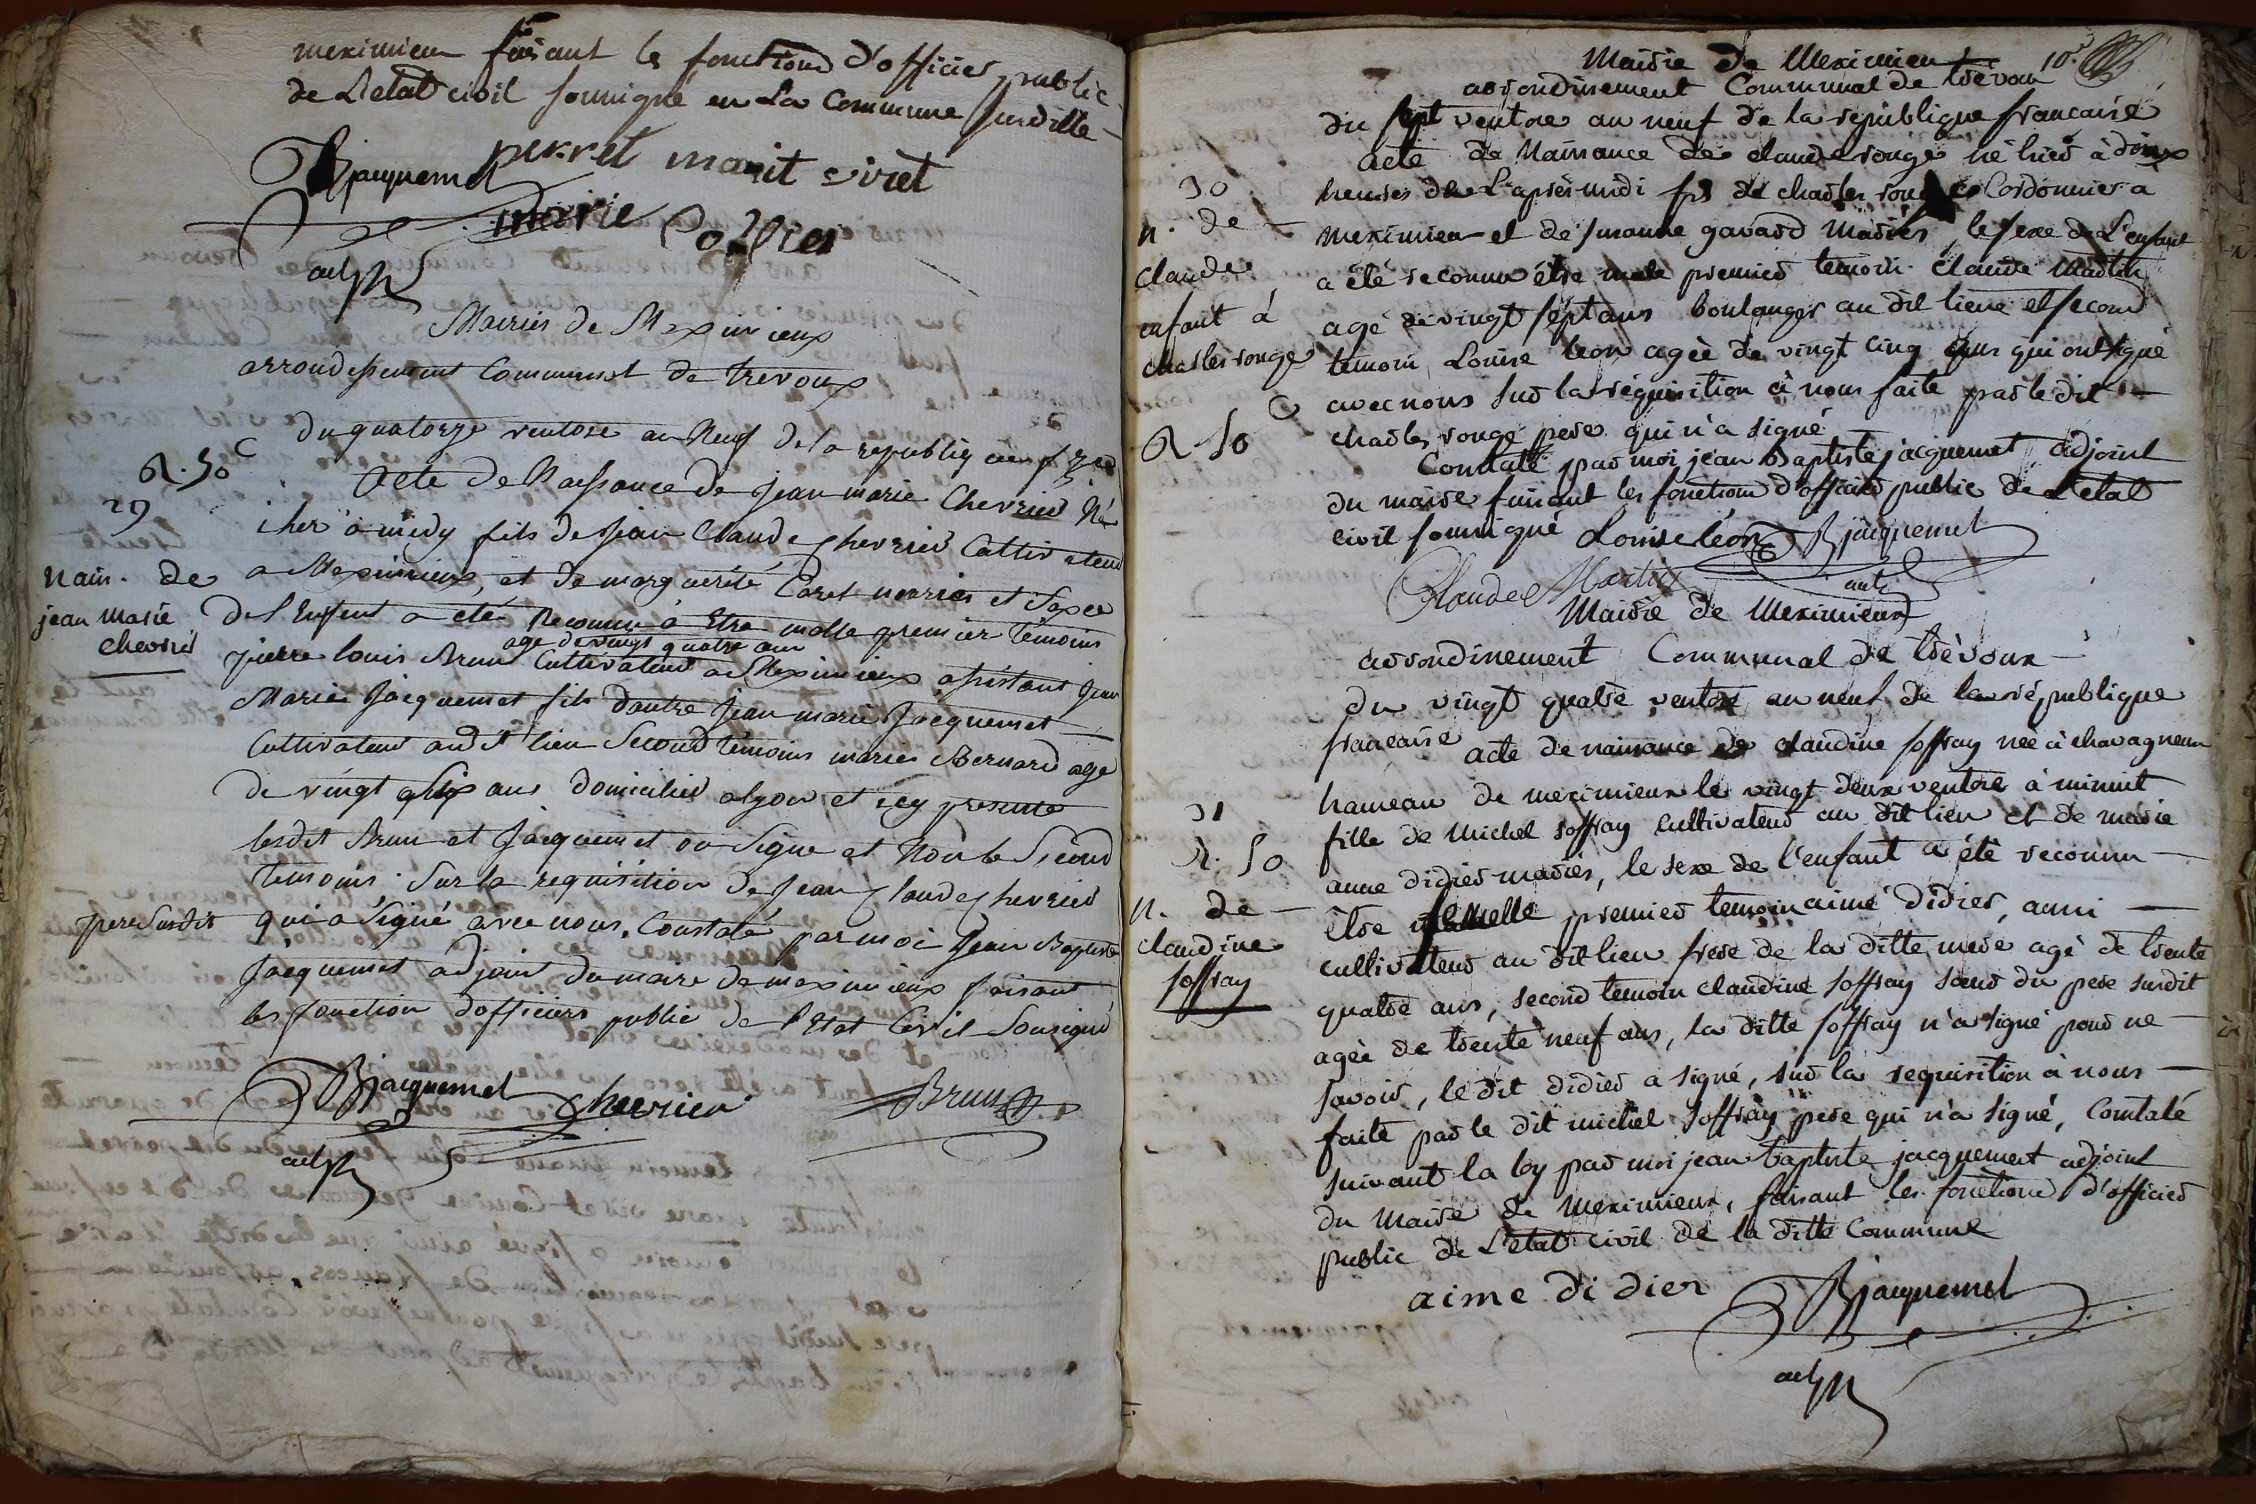 meximieux faisant les fonctions d'officier public
de L'etat civil soussigné en La Commune susditte
Bjacquemet perret marit viret
marie Collier
adjt
Mairies de Meximieux
arrondissement Communal de trevoux
du quatorze ventose an Neuf de la republique
R. 50 c
29
Acte de Naissance de jean marie Chevrier Né
hier a midy fils de jean Claude chevrier Cultivateur
Nais. de
jean marie
chevrier
a Meximieux, et de marguerite Caret mariés et Sexce
de l'Enfent a eté Reconnu a Etre malle premier temoins
age de vingt quatre ans
pierre louis Brun Cultivateur a Meximieux assistant jean
Marie Jacquemet fils dautre jean marie Jacquemet
Cultivateur audit lieu Second temoins marie Bernard age
de vingt six ans domicilié et icy presente
lesdit Brun et Jacquemet on Signe et Non le Second
temoins. Sur la requisition de Jean Claude chevrier
pere Susdit
qui a Signé avec nous. Constaté par moi Jean Baptiste
Jacquemet adjoint du maire de meximieux faisant
les fonction dofficiers public de l'Etat Civil Sousigné
Bjacquemet chevrier Brun
adjt
10.e
Mairie de Meximieux
arrondissement Communal de trévoux
du sept ventose an neuf de la république francaise
acte de Naissance de claude rouge né hier à deux
30
n. de
claude
enfant à
charles rouge
R 50 c
heures de L'après midi fils de charles rouge Cordonnier a
meximieux et de susanne gavard Mariés, le sexe de L'enfant
a été reconnu être male premier temoin claude martin
agé de vingt sept ans boulanger au dit lieu et second
temoin Louise leon agée de vingt cinq ans qui ont signé
avec nous sur la réquisition à nous faite par le dit
charles rouge pere qui n'a signé
Constaté par moi jean Baptiste jacquemet adjoint
du maire faisant les fonctions d'officier public de L'etat
civil soussigné Louise léon Bjacquemet
Claude Martin adjt
Mairie de Meximieux
arrondissement Communal de trévoux
du vingt quatre ventose an neuf de la république
francaise acte de naissance de claudine soffray née à chavagneux
31
R. 50
n. de
claudine
soffray
hameau de meximieux le vingt deux ventose à minuit
fille de Michel soffray cultivateur au dit lieu et de marie
anne didier mariés, le sexe de l'enfant a été reconnu
être femelle premier temoin aimé didier, aussi
cultivateur au dit lieu frere de la ditte mere agé de trente
quatre ans, second temoin claudine soffray sœur du pere susdit
agée de trente neuf ans, la ditte soffray n'a signé pour ne
savoir, le dit didier a signé, sur la requisition à nous
faite par le dit michel soffray pere qui n'a signé, Constaté
suivant la loy par moi jean baptiste jacquemet adjoint
du Maire de Meximieux, faisant les fonctions d'officier
public de L'état civil de la ditte Commune
aime didier Bjacquemet
adjt